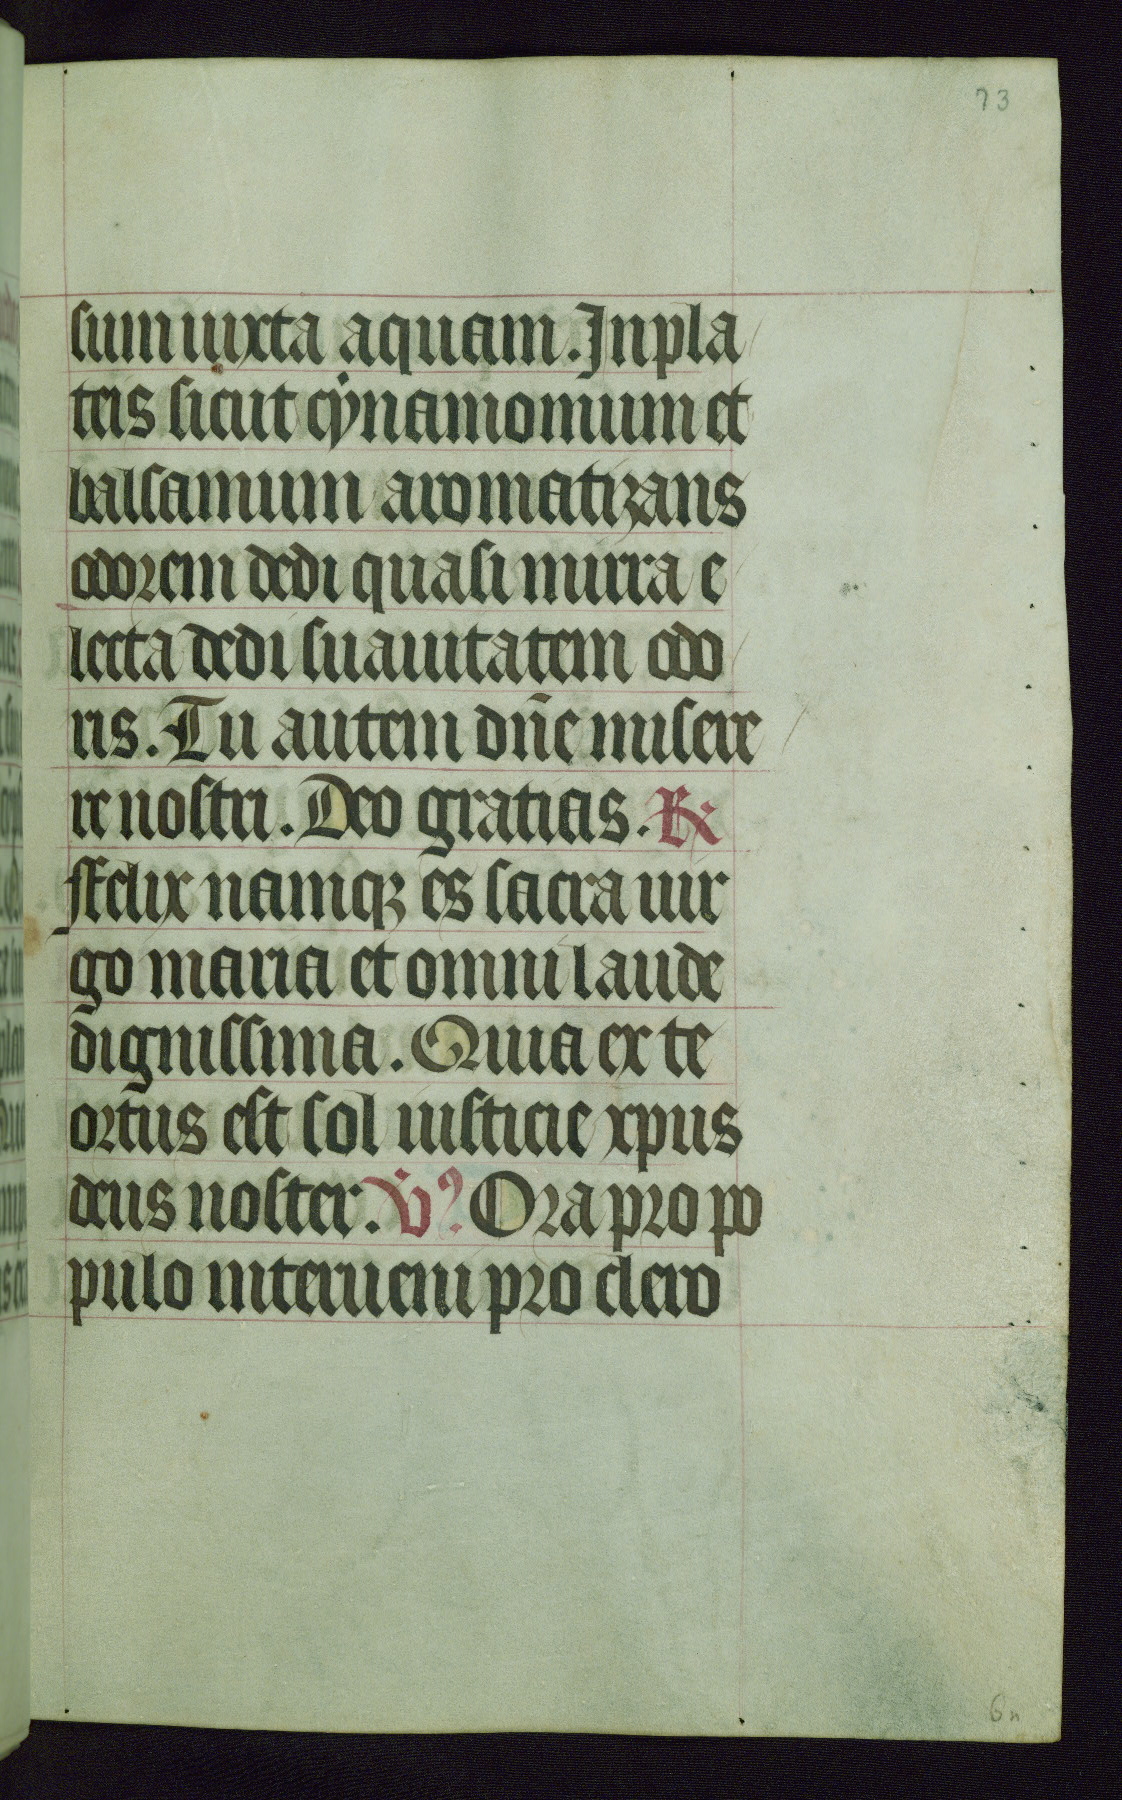 73
sum iuxta aquam. In pla
teis sicut cynamomum et
balsamum aromatizans
odorem dedi quasi mirra e
lecta dedi suauitatem odo
ris. Tu autem dñe misere
re nostri. Deo gratias. ℟
ffelix namqꝫ es sacra uir
go maria et omni laude
dignissima. Quia ex te
ortus est sol iusticie xpus
deus noster. ℣ꝰ. Ora pro po
pulo interueni pro clero